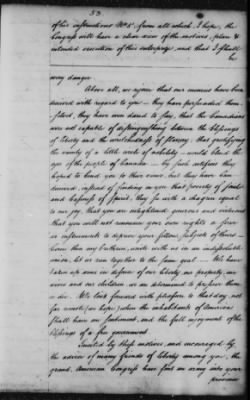 53
of his instructions No 5. from all which, I hope, the
Congress will have a clear view of the motives, plan &
intended execution of this enterprize, and that I shall
be
any danger.
Above all, we rejoice that our enemies have been
deceived with regard to you — they have persuaded them-
selves, they have even dared to say, that the Canadians
were not capable of distinguishing between the blessings
of liberty and the wretchedness of slavery; that gratifying
the vanity of a little circle of nobility would blind the
eyes of the people of Canada — by such artifices they
hoped to bend you to their views, but they have been
deceived, instead of finding in you that poverty of soul
and baseness of spirit, they see with a chagrin equal
to our joy, that you are enlightened, generous and virtuous
that you will not renounce your own rights or serve
as instruments to deprive your fellow subjects of theirs —
Come then my brethren, unite with us in an indissoluble
union, let us run together to the same goal — We have
taken up arms in defence of our liberty, our property, our
wives and our children, we are determined to preserve them
or die. We look forward with pleasure to that day not
far remote (we hope) when the inhabitants of America
shall have one sentiment, and the full enjoyment of the
blessings of a free government.
Incited by these motives and encouraged by
the advice of many friends of liberty among you, the
grand American Congress have sent an army into your
province